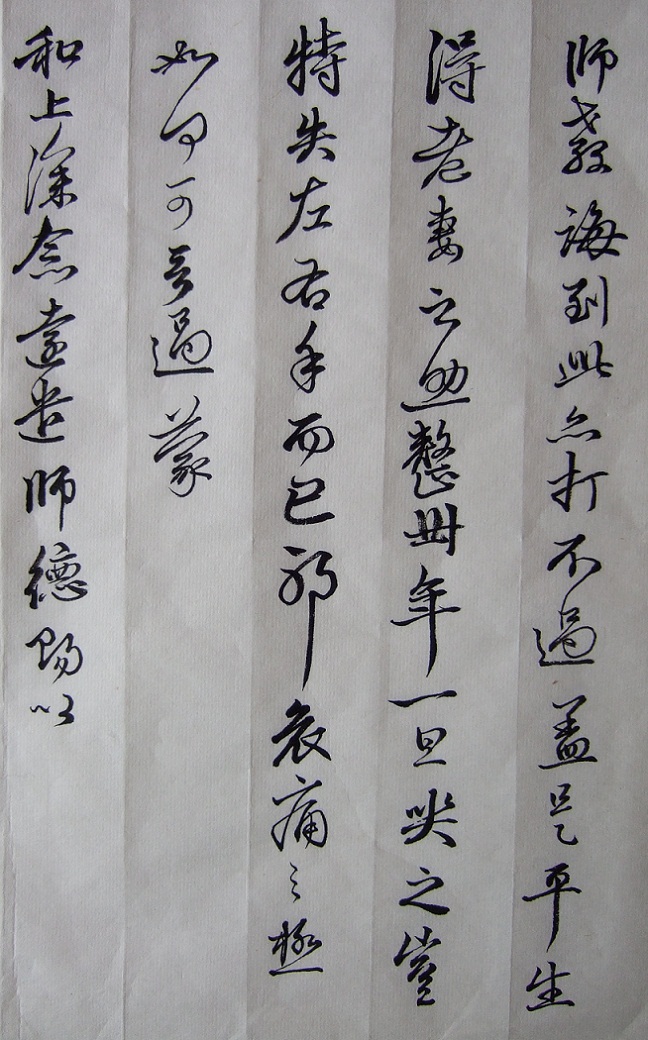 師教誨到此亦打不過盖是平生
得老妻之助整卅年一旦哭之豈
特失左右手而已耶哀痛之極
如何可言過蒙
和上深念遠遣師德賜以